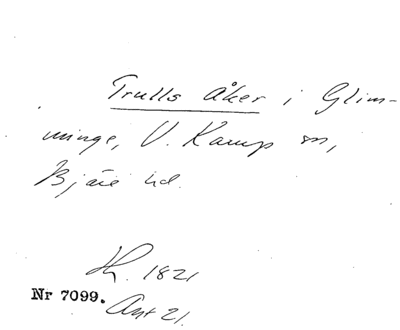 Trulls åker i Glim-
minge, V. Karup sn,
Bjäre hd.
1821
Nr 7099.
Ant 21.